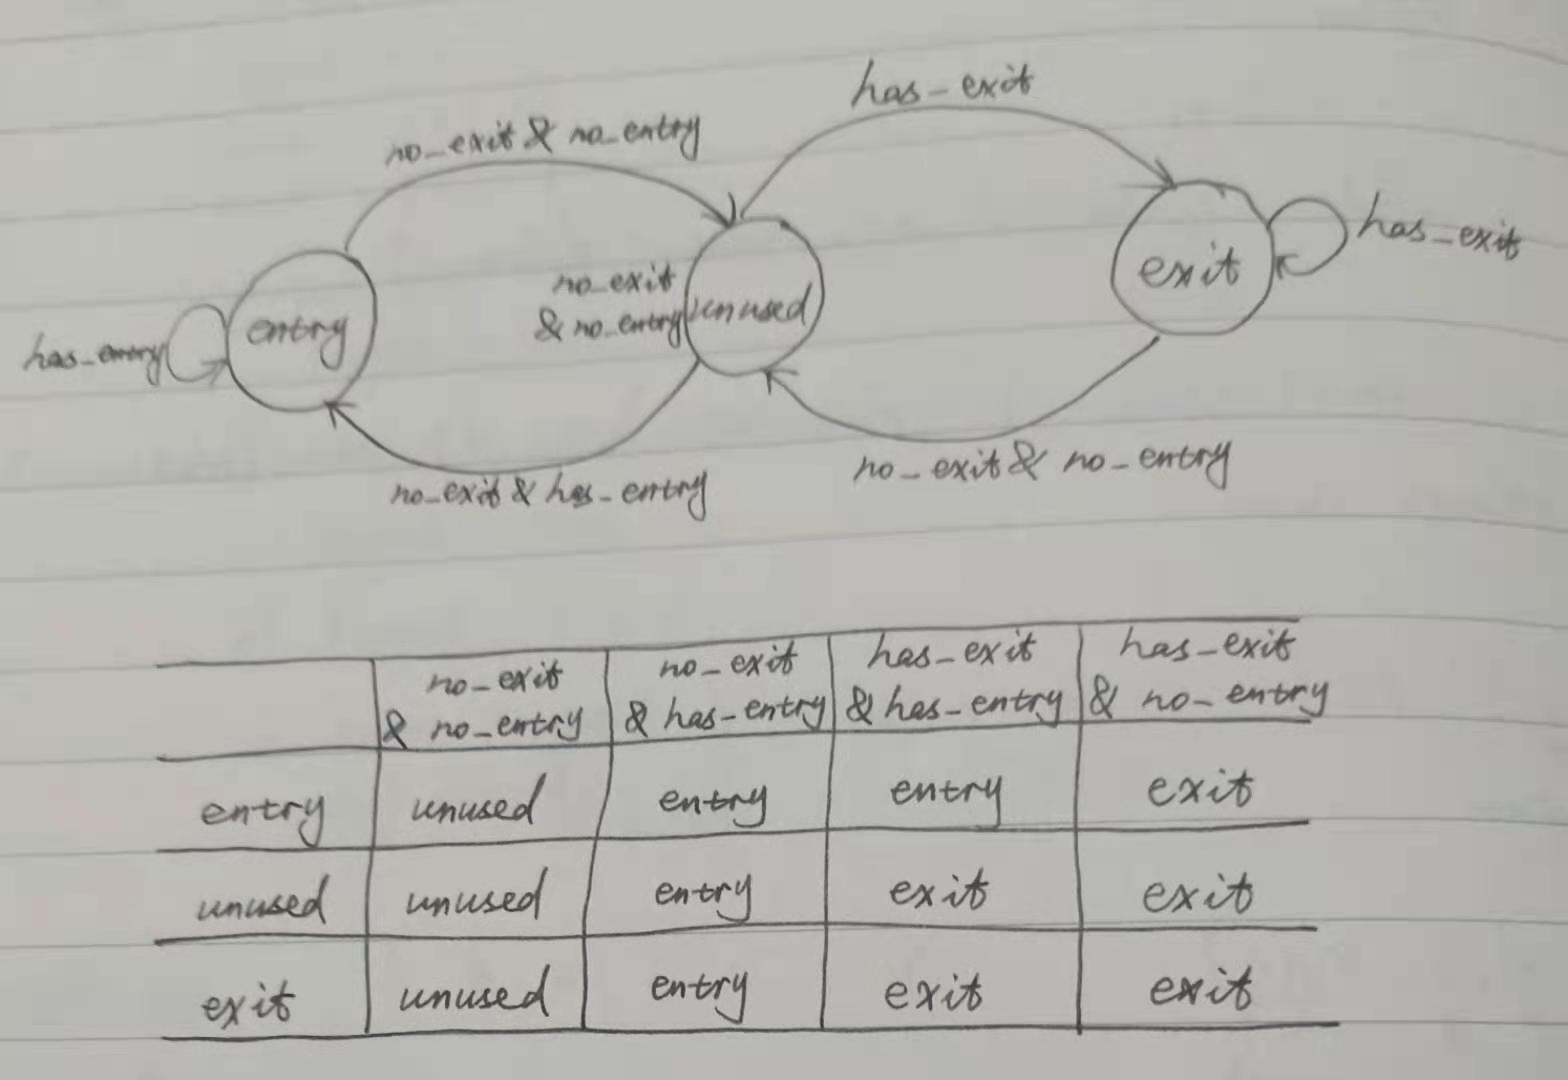 has_exit
no_exit & no_entry
has_exit
no_exit
& no_entry
unused
exit
entry
has_entry
no_exit & no_entry
no_exit & has_entry
no_exit
& no_entry
no_exit
& has_entry
has_exit
& has_entry
has_exit
& no_entry
entry unused entry entry exit
unused unused entry exit exit
exit unused entry exit exit